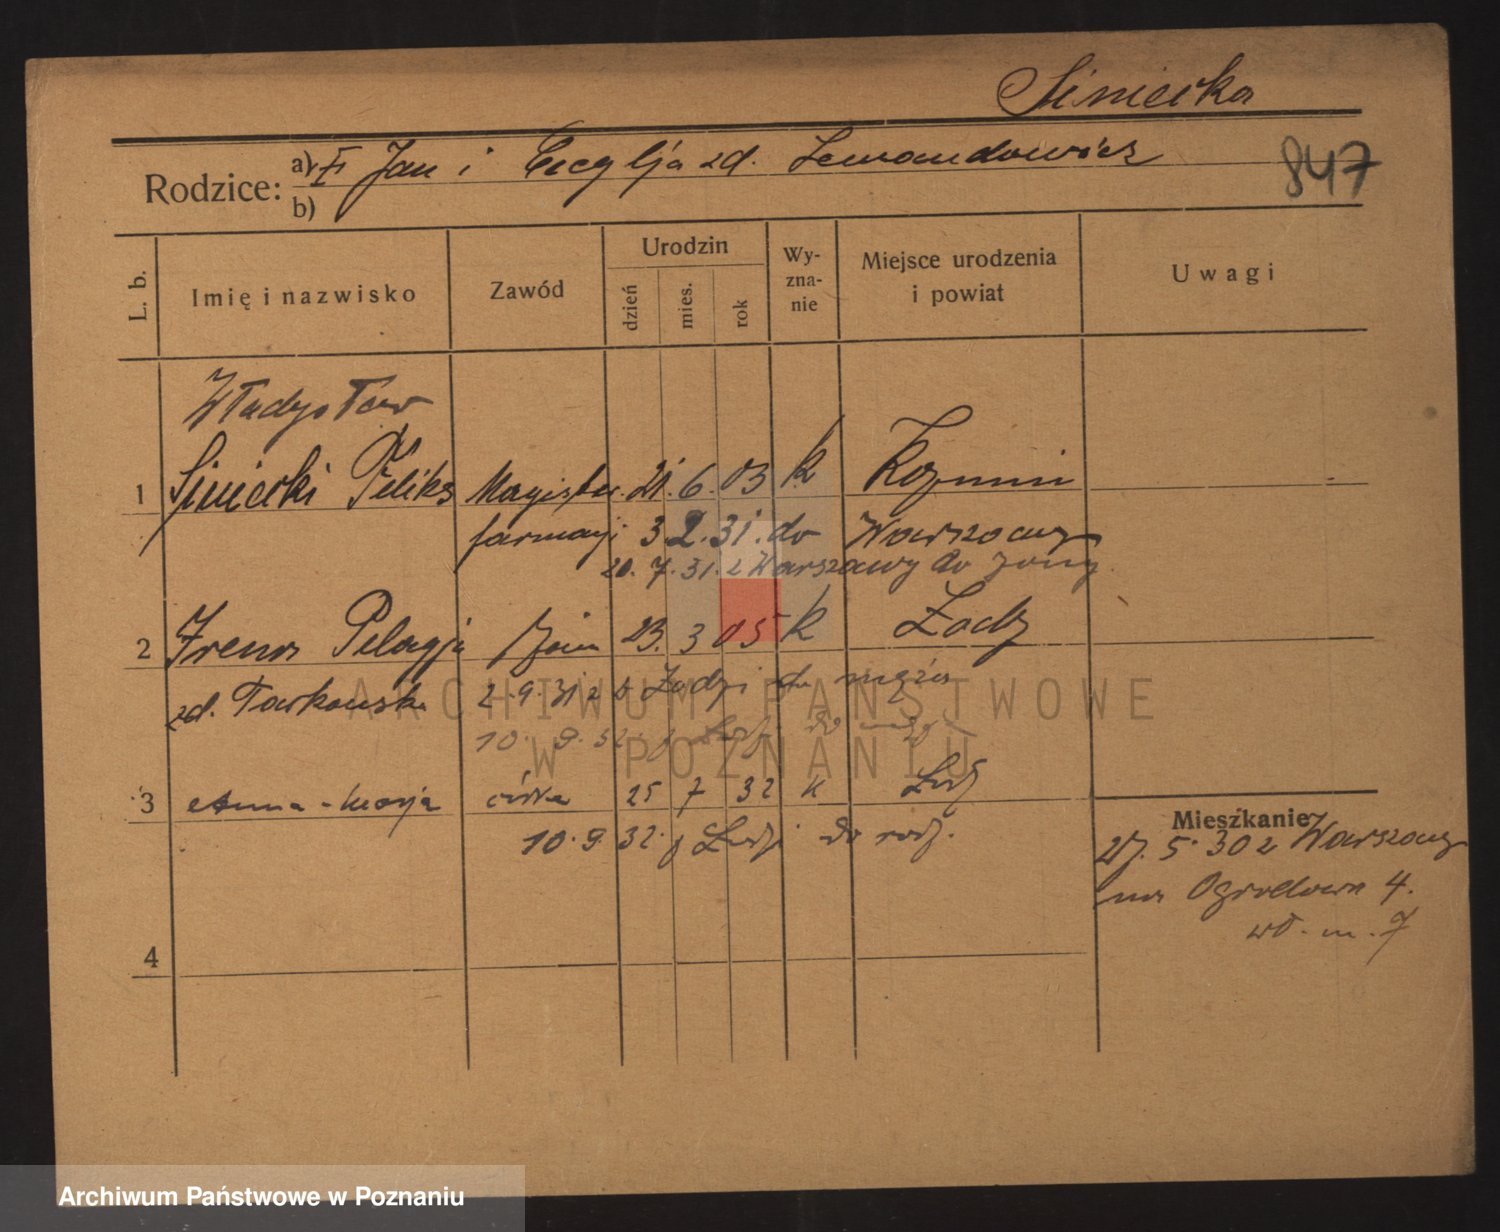 Siniecka
Rodzice: a) Jan i Cecylja zd. Lewandowicz
b)
847
L. b.
Imię i nazwisko
Zawód
Urodzin
dzień
mies.
rok
Wy-
zna-
nie
Miejsce urodzenia
i powiat
Uwagi
Władysław
1 Siniecki Feliks Magister 21. 6. 03 k Kozmin
farmacji 3 2. 31. do Warszawy
20. 7. 31. z Warszawy do żony
2 Irena Pelagja żona 23. 3 05 k Łódź
zd. Tarkowska 2. 9. 31 z Łodzi do męża
10. 9. 32. z Łodzi do męża
3 Anna-Marja córka 25 7 32 k Łódź
10. 9. 32. z Łodzi do rodz.
4
Mieszkanie
27. 5. 30 z Warszawy
na Ogrodowa 4.
wł. m. 7
ARCHIWUM PAŃSTWOWE
W POZNANIU
Archiwum Państwowe w Poznaniu